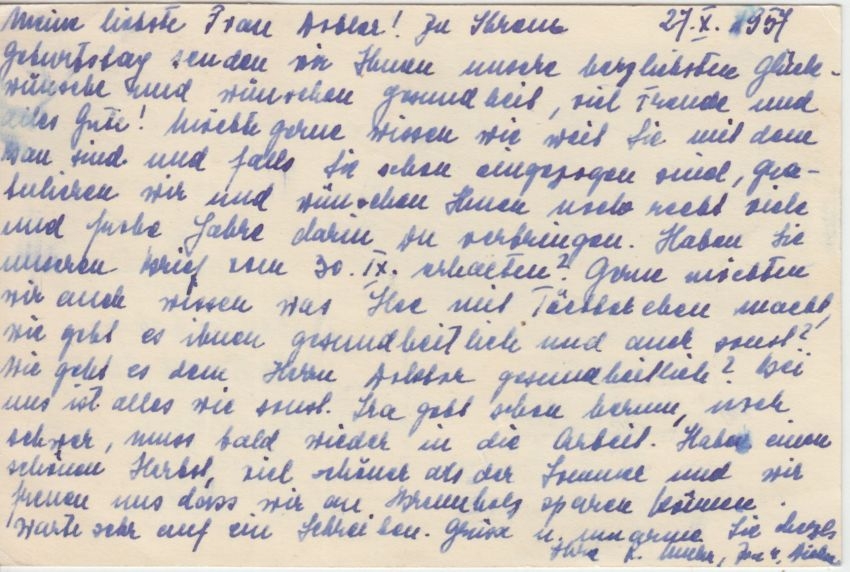 Meine liebste Frau Doktor! Zu Ihrem 27.X. 1957
Geburtstag senden wir Ihnen unsere herzliebsten Glück-
wünsche und wünschen Gesundheit, viel Freude und
alles Gute! Möchte gerne wissen wie weit Sie mit dem
Bau sind und falls Sie schon eingezogen sind, gra-
tulieren wir und wünschen Ihnen noch recht viele
und frohe Jahre darin zu verbringen. Haben Sie
unseren Brief vom 30. IX. erhalten? Gerne möchten
wir auch wissen was mit Töchterchen macht,
wie geht es ihnen gesundheitlich und auch sonst?
Wie geht es dem Herrn Doktor gesundheitlich? Bei
uns ist alles wie sonst. Ira geht schon herum, noch
schwer, muss bald wieder in die Arbeit. Haben einen
schönen Herbst, viel schöner als der Sommer und wir
freuen uns dass wir an Brennholz sparen können.
Warte sehr auf ein Schreiben. Grüsse u. umarme Sie herzl.
Ihre